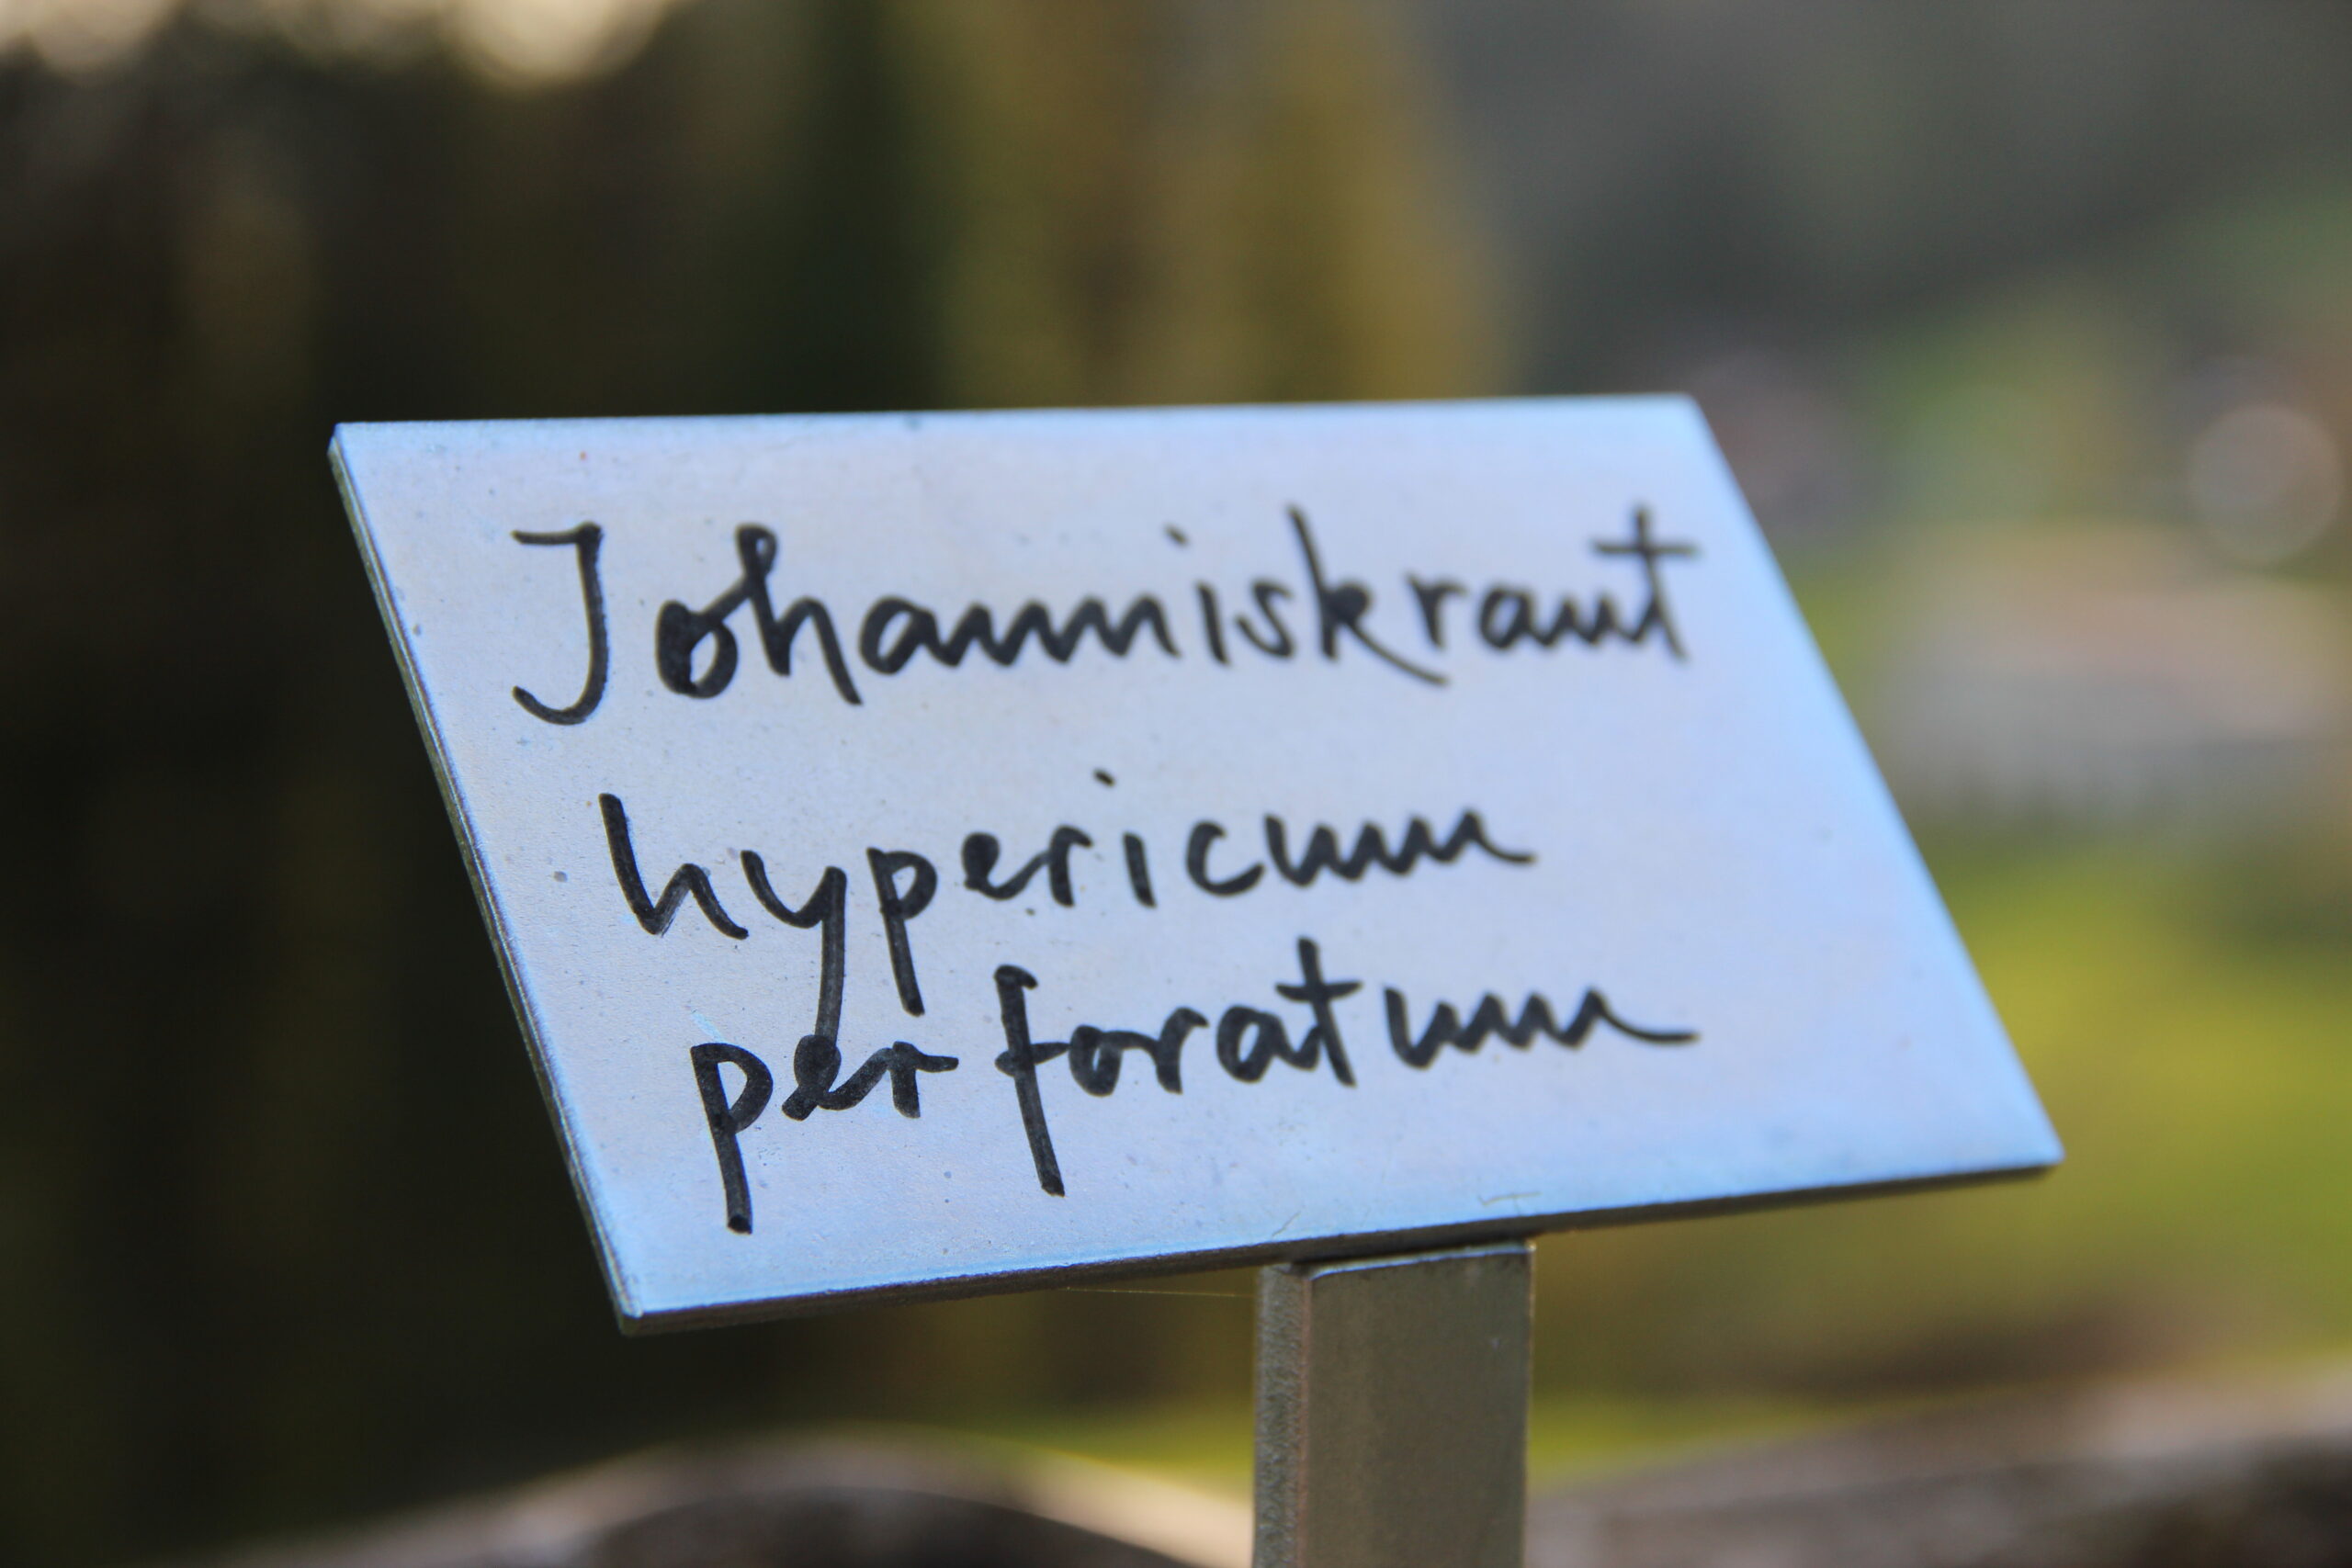 Johanniskraut
hypericum
perforatum